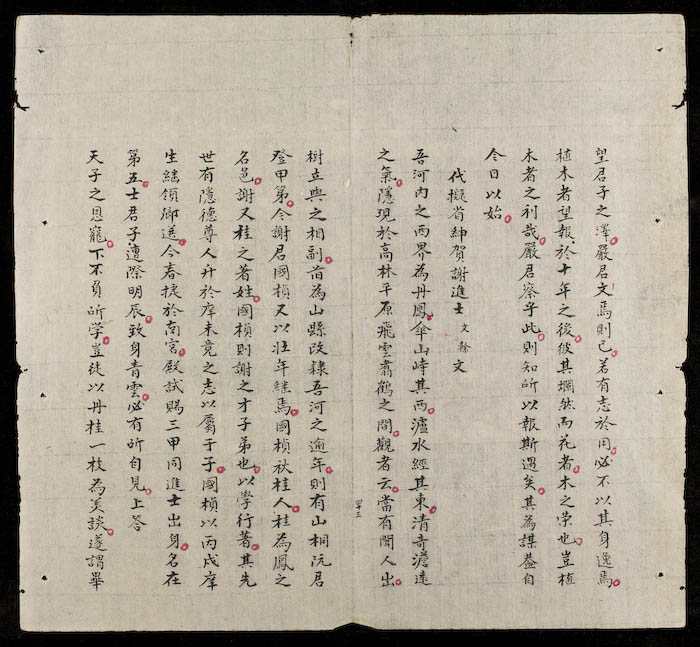 望君子之澤嚴君文焉則已若有志於用必不以其身逸焉
植木者望報於十年之後彼其爛然而花者木之榮也豈植
木者之利哉嚴君察乎此則知所以報斯遇矣其為謀盍自
今日以始
代擬省紳賀謝進士文 翰文
吾河內之西界為丹鳳傘山峙其西瀘水經其東清奇澹遠
之氣隱現於高林平原飛雲翥鶴之間觀者云當有聞人出
四十三
樹立與之相副首為山縣改隸吾河之逾年則有山桐阮君
登甲第今謝君國楨又以壯年繼焉國楨秋桂人桂為鳳之
名邑謝又桂之著姓國楨則謝之才子弟也以學行著其先
世有隱德尊人升於庠未竟之志以屬于子國楨以丙戌庠
生繡領鄉選今春捷於南宮殿試賜三甲同進士出身名在
第五士君子遭際明辰致身青雲必有所自見上答
天子之恩寵下不負所学豈徒以丹桂一枝為美談遂謂畢